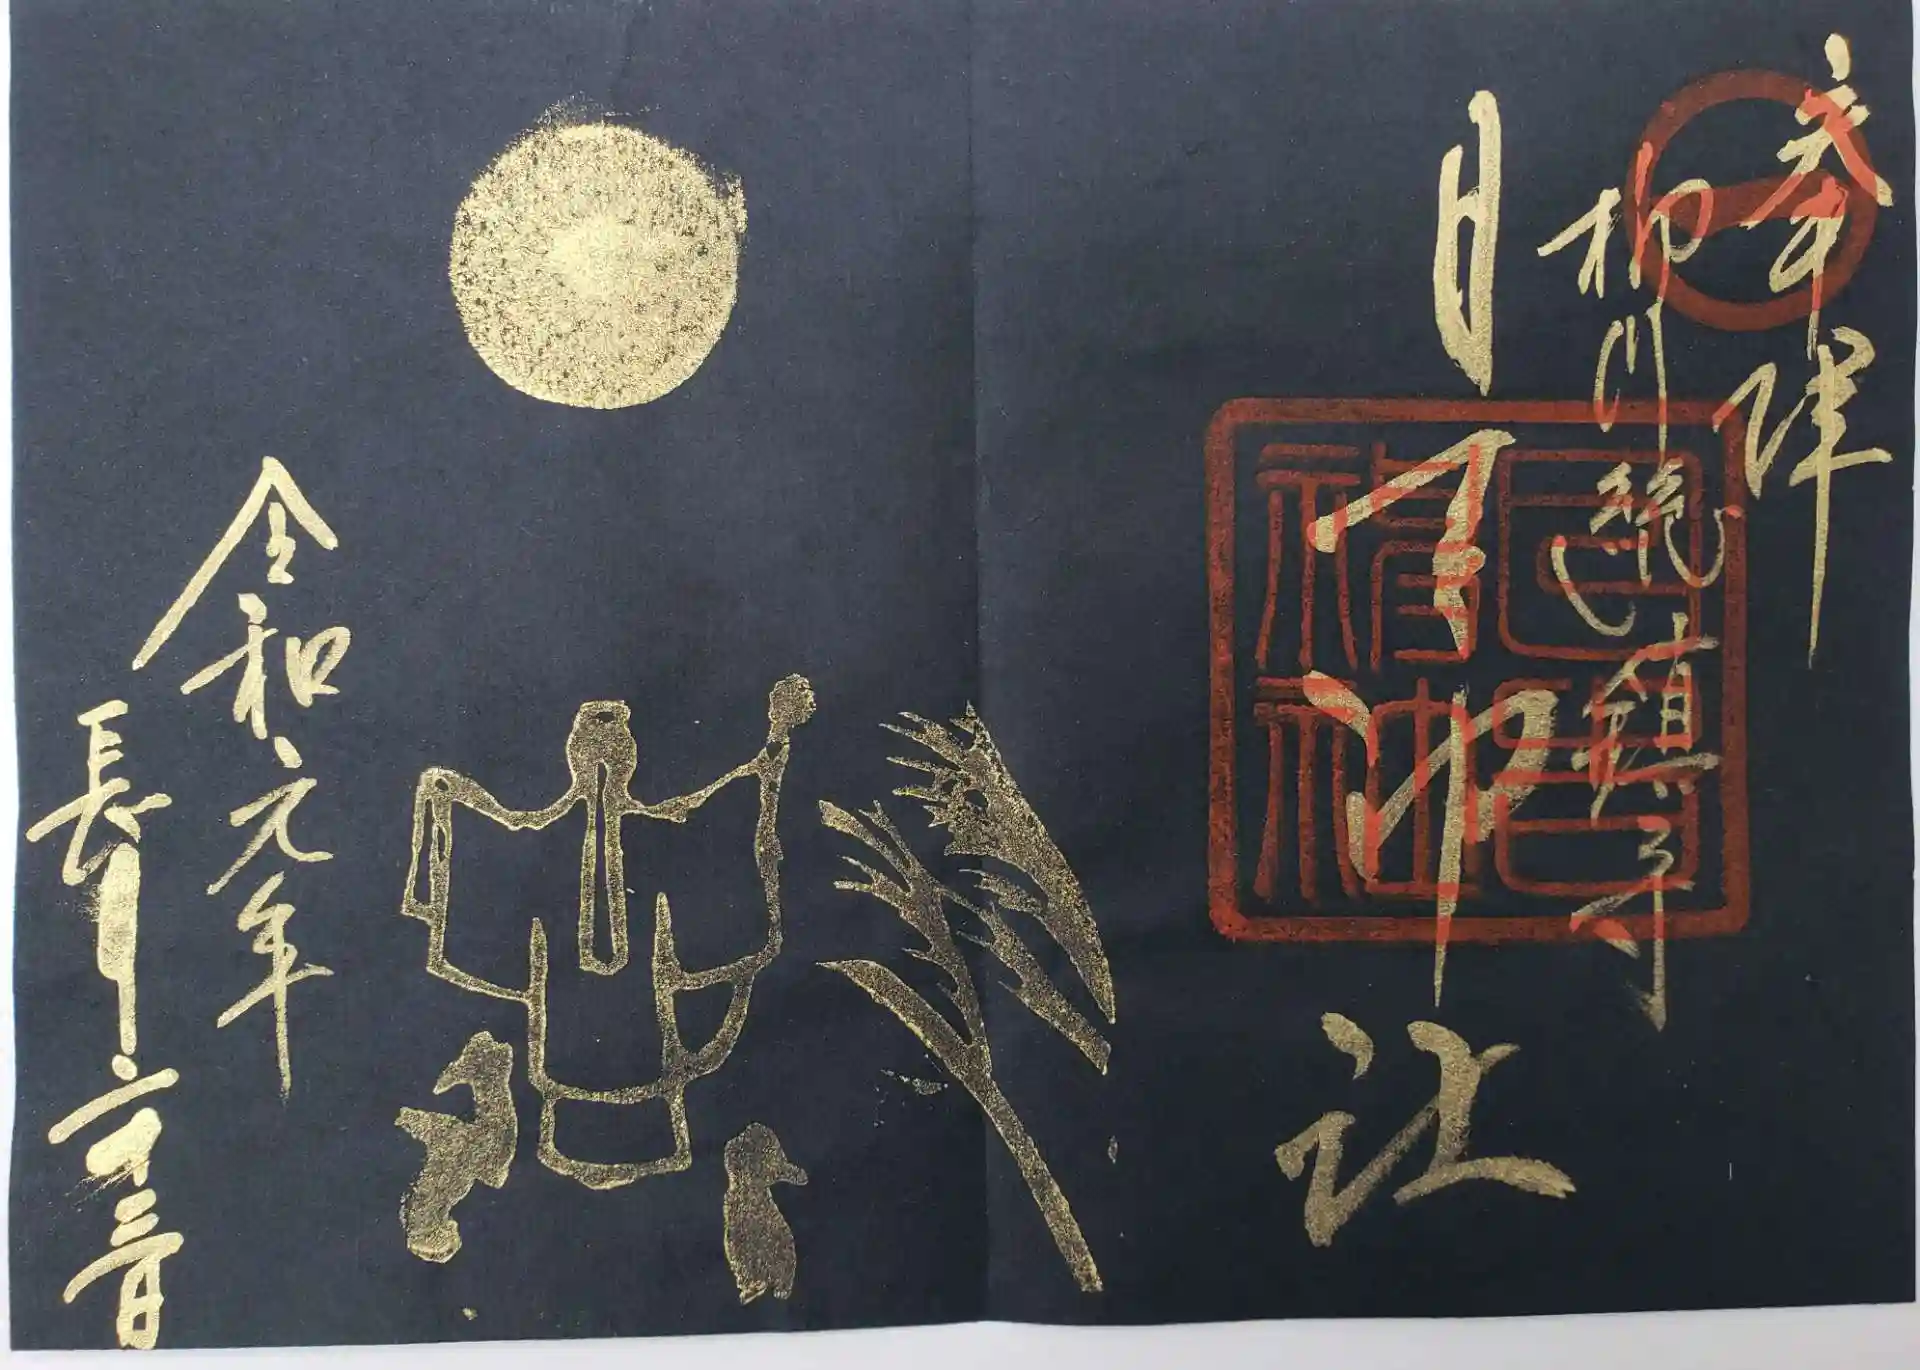 奉拝
柳川総鎮守
日吉神社
令和元年
長月十三日